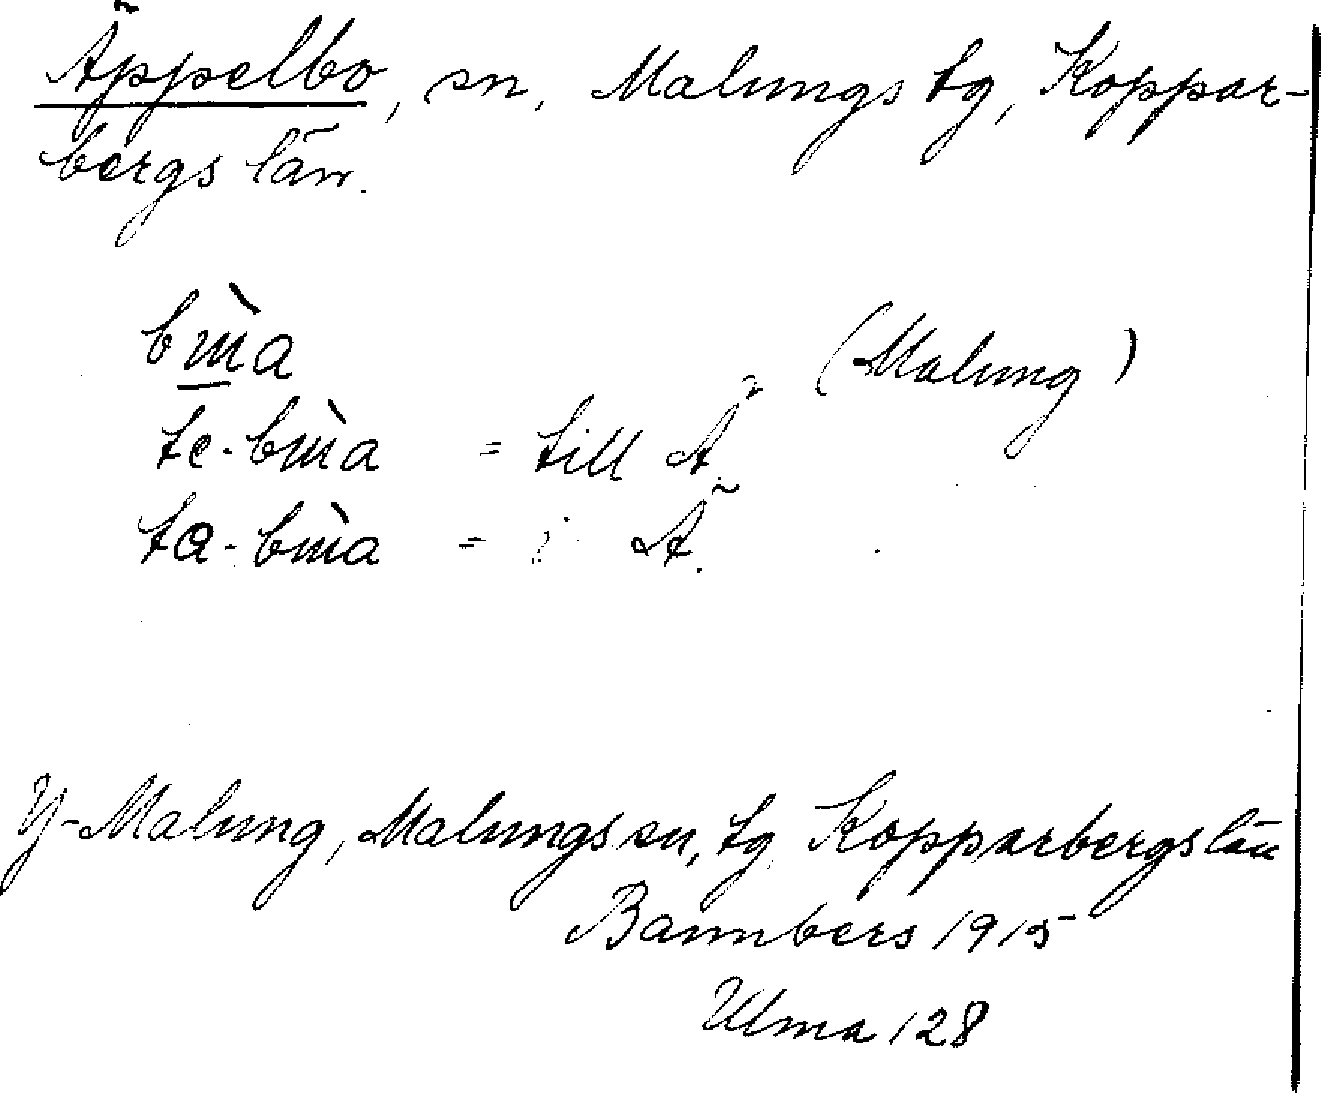 Äppelbo, sn, Malungs tg, Koppar-
bergs län.
(Malung)
= till Ä.
= i Ä.
Y-Malung, Malungs sn, tg Kopparbergs län
Bannbers 1915
Ulma 128